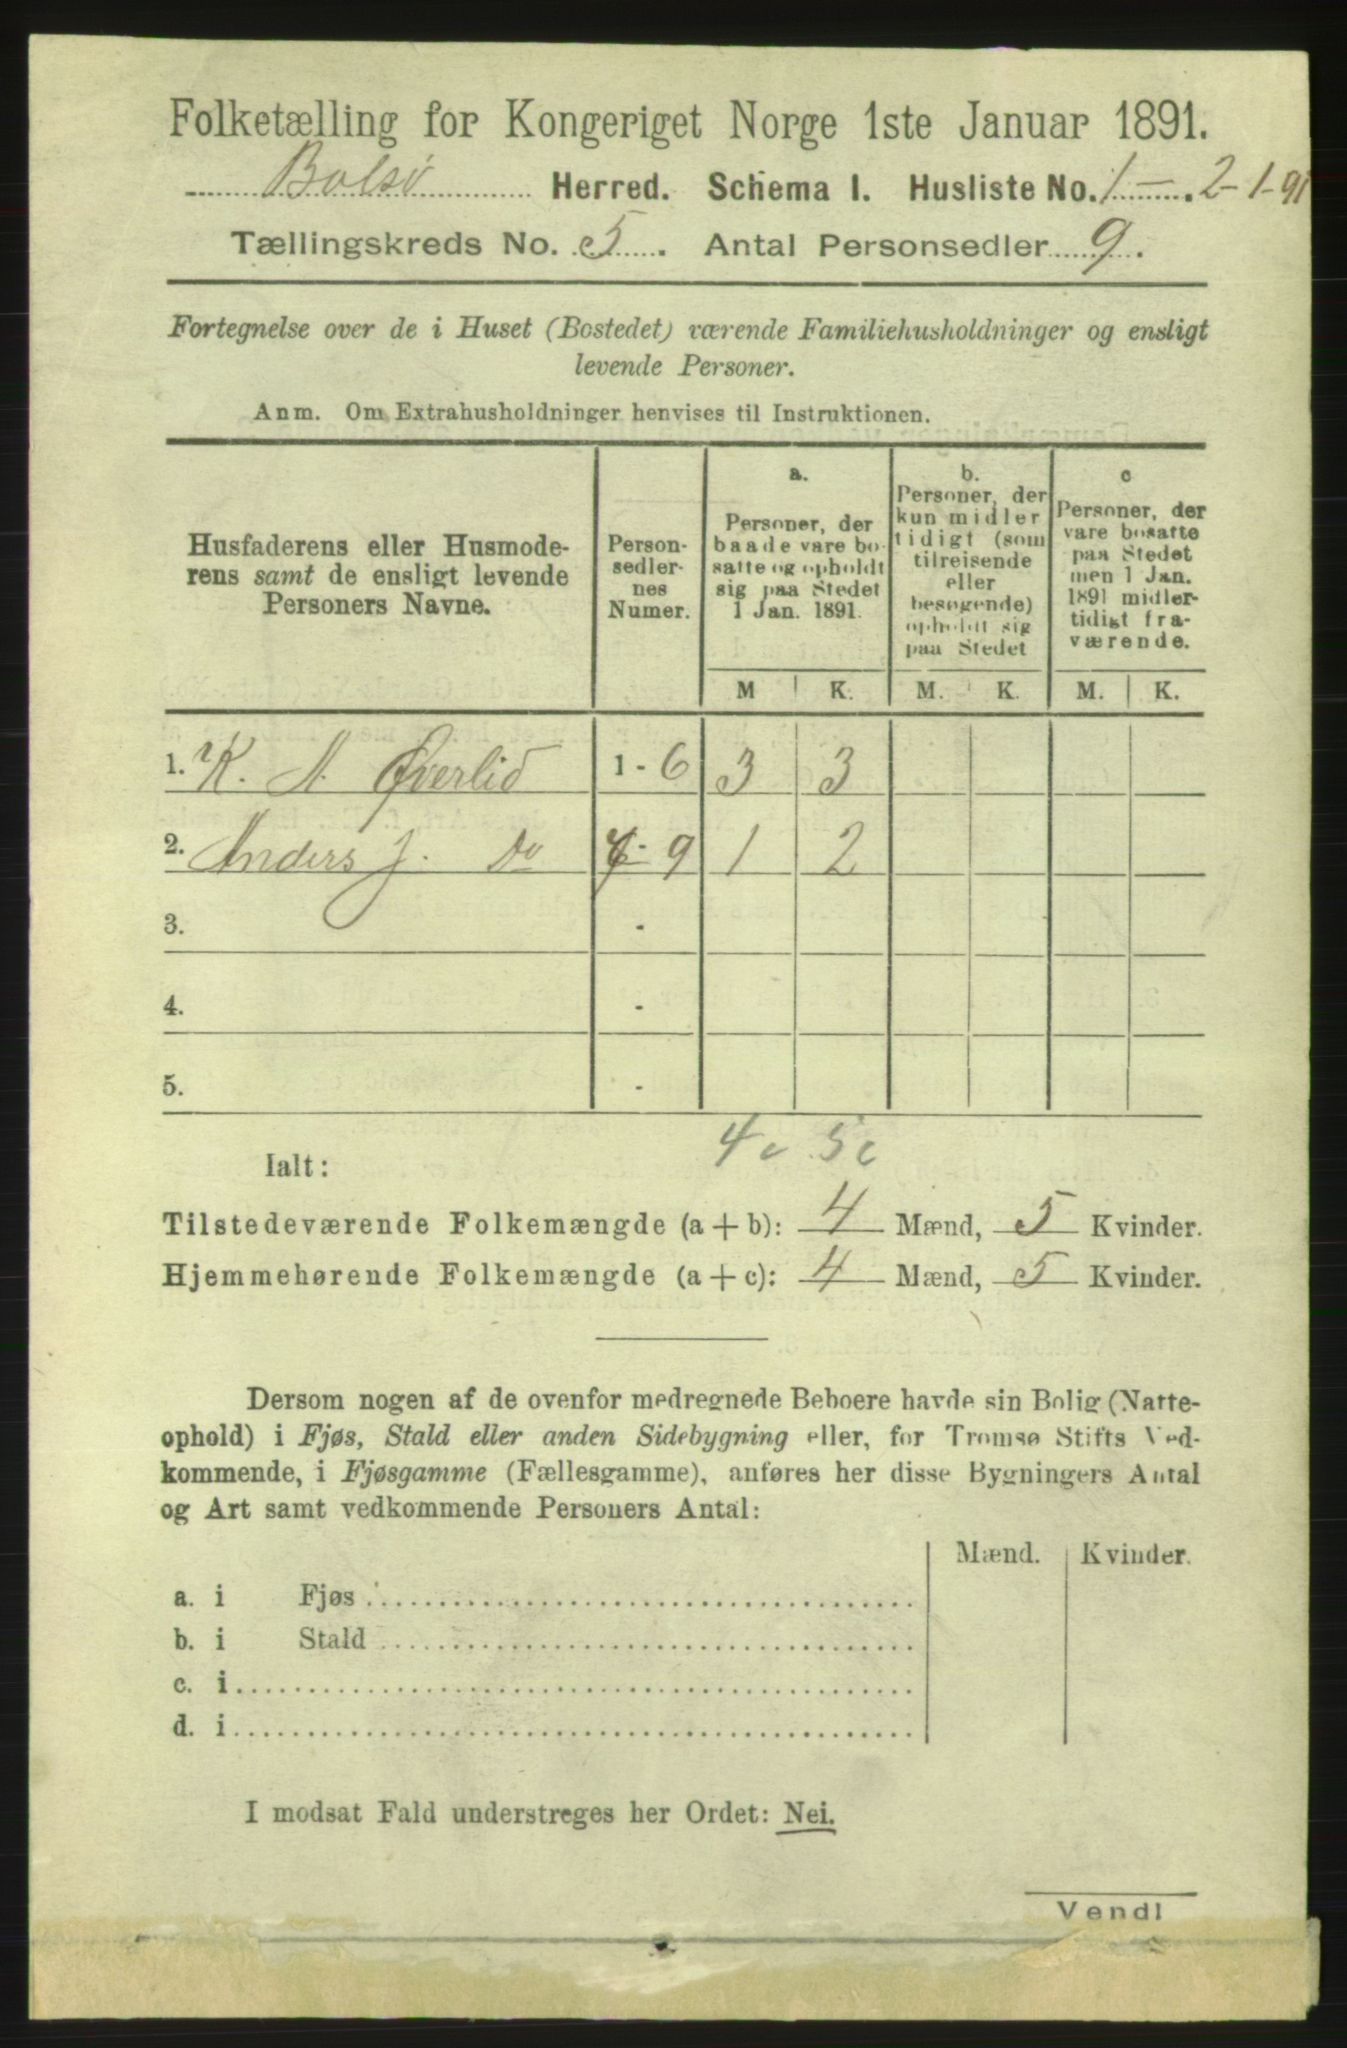 Folketælling for Kongeriget Norge 1ste Januar 1891.
Bolsø Herred. Schema I. Husliste No. 1 - . 2-1-91
Tællingskreds No. 5 . Antal Personsedler 9 .
Fortegnelse over de i Huset (Bostedet) værende Familiehusholdninger og ensligt
levende Personer.
Anm. Om Extrahusholdninger henvises til Instruktionen.
Husfaderens eller Husmode-
rens samt de ensligt levende
Personers Navne.
Person-
sedler-
nes
Numer.
a.
Personer, der
baade vare bo-
satte og opholdt
sig paa Stedet
1 Jan. 1891.
b.
Personer, der
kun midler
tidigt (som
tilreisende
eller
besøgende)
opholdt sig
paa Stedet
c
Personer, der
vare bosatte
paa Stedet
men 1 Jan.
1891 midler-
tidigt fra-
værende.
M K. M. K. M. K.
1. K. A. Øverlid 1 - 6 3 3
2. Anders J. Do 7 - 9 1 2
3. -
4. -
5. -
4 c 5 c
Ialt:
Tilstedeværende Folkemængde (a + b): 4 Mænd, 5 Kvinder.
Hjemmehørende Folkemængde (a + c): 4 Mænd, 5 Kvinder.
Dersom nogen af de ovenfor medregnede Beboere havde sin Bolig (Natte-
ophold) i Fjøs, Stald eller anden Sidebygning eller, for Tromsø Stifts Ved-
kommende, i Fjøsgamme (Fællesgamme), anføres her disse Bygningers Antal
og Art samt vedkommende Personers Antal:
Mænd. Kvinder.
a. i Fjøs
b. i Stald
c. i
d. i
I modsat Fald understreges her Ordet: Nei.
Vend!